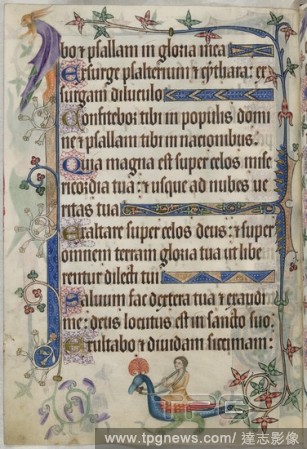 bo ⁊ psallam in gloria mea
Exsurge psalterium ⁊ cythara: ex
surgam diluculo
Confitebor tibi in populis domi
ne ⁊ psallam tibi in nacionibus.
Quia magna est super celos mise
ricordia tua: ⁊ usque ad nubes ue
ritas tua
Exaltare super celos deus: ⁊ super
omnem terram gloria tua ut libe
rentur dilecti tui
Saluum fac dextera tua ⁊ exaudi
me: deus locutus est in sancto suo.
Exultabo ⁊ diuidam siccimam:
TPG
www.tpgnews.com/ 達志影像